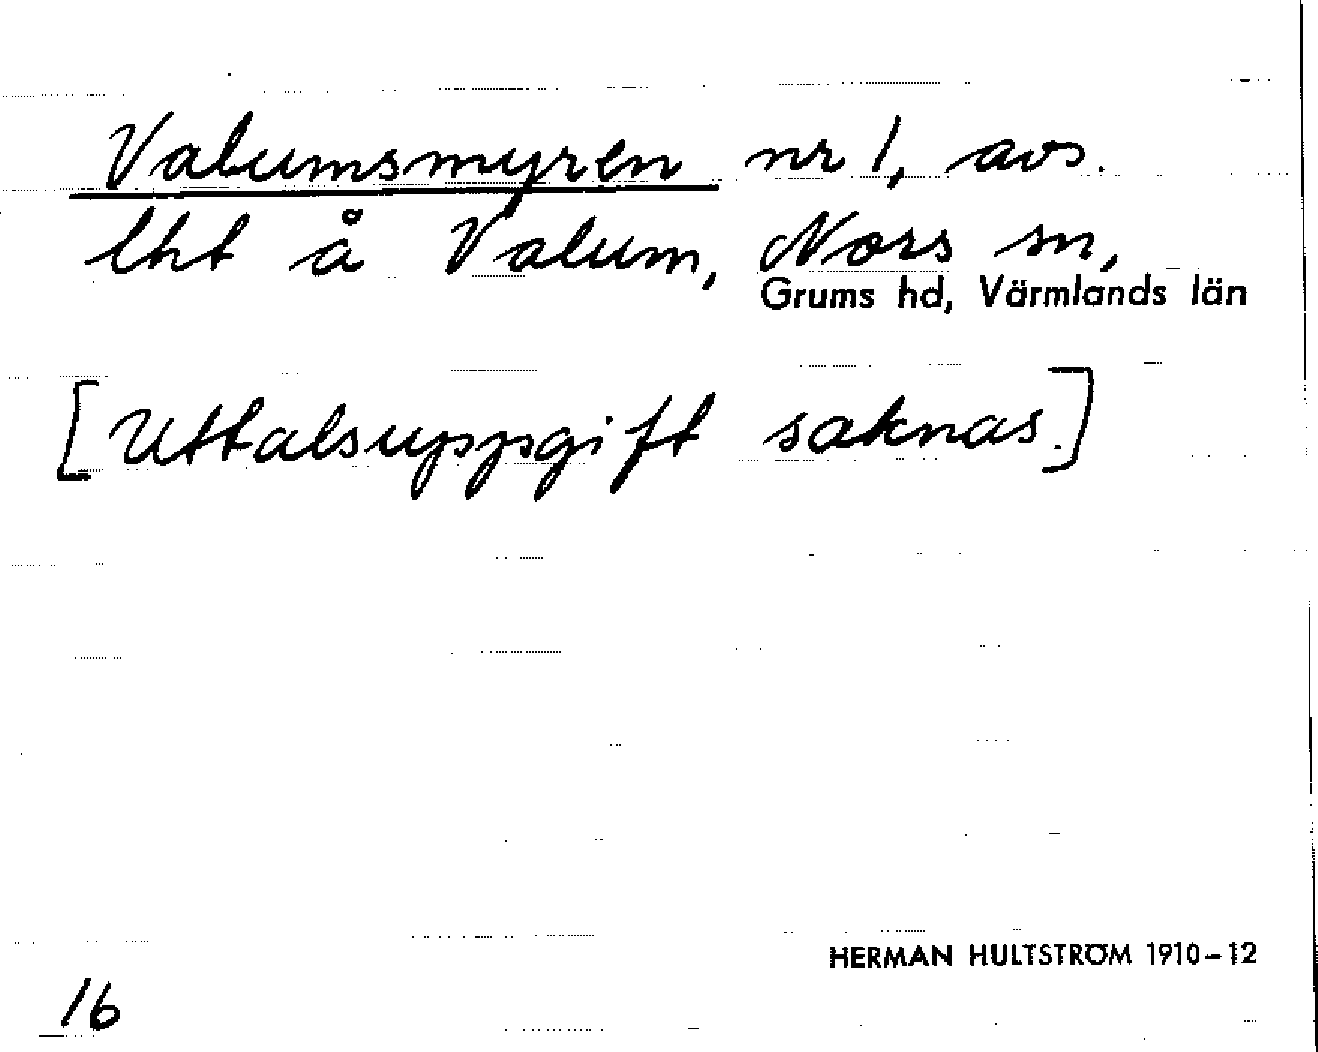 Valumsmyren nr 1, avs.
lht å Valum, Nors sn,
Grums hd, Värmlands län
[Uttalsuppgift saknas.]
HERMAN HULTSTRÖM 1910-12
16